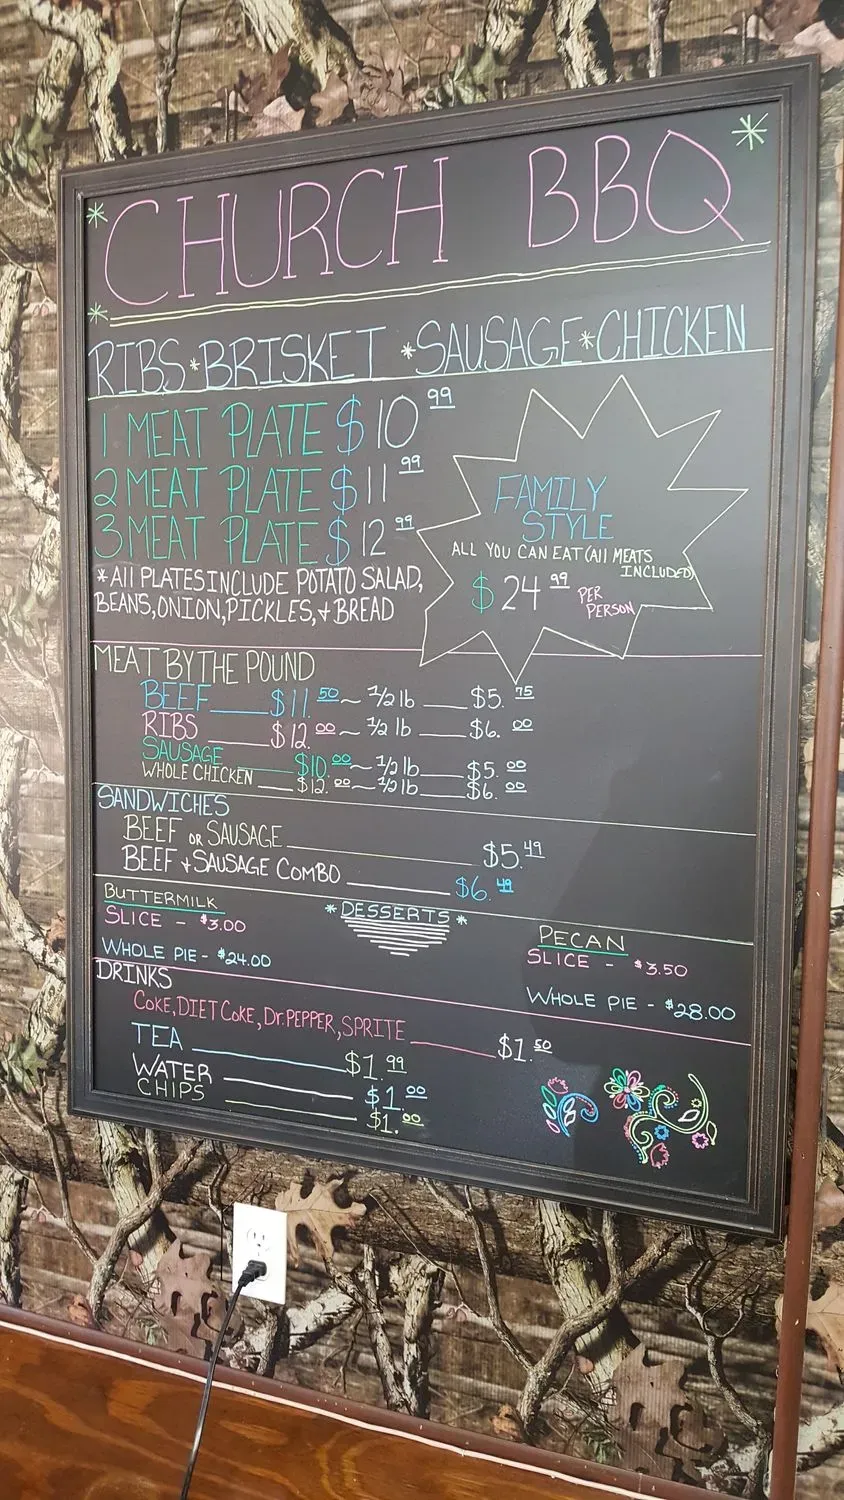 CHURCH BBQ
RIBS * BRISKET * SAUSAGE * CHICKEN
1 MEAT PLATE $10.99
2 MEAT PLATE $11.99
3 MEAT PLATE $12.99
*All PLATES INCLUDE POTATO SALAD,
BEANS, ONION, PICKLES, + BREAD
FAMILY
STYLE
ALL YOU CAN EAT (All MEATS
INCLUDED)
$24.99 PER
PERSON
MEAT BY THE POUND
BEEF $11.50 ~ 1/2 lb $5.75
RIBS $12.00 ~ 1/2 lb $6.00
SAUSAGE $10.00 ~ 1/2 lb $5.00
WHOLE CHICKEN $12.00 ~ 1/2 lb $6.00
SANDWICHES
BEEF OR SAUSAGE $5.49
BEEF + SAUSAGE COMBO $6.49
* DESSERTS *
BUTTERMILK
SLICE - $3.00
WHOLE PIE - $24.00
PECAN
SLICE - $3.50
WHOLE PIE - $28.00
DRINKS
COKE, DIET COKE, Dr. PEPPER, SPRITE $1.50
TEA $1.99
WATER $1.00
CHIPS $1.00